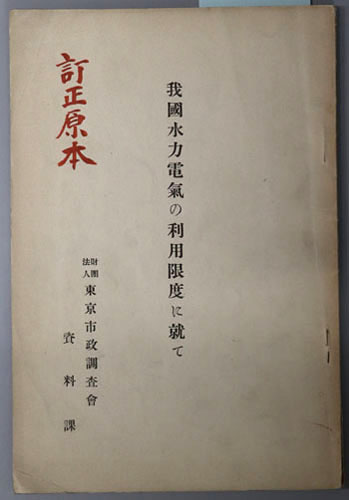 我國水力電氣の利用限度に就て
訂正原本
財團法人 東京市政調査會
資料課